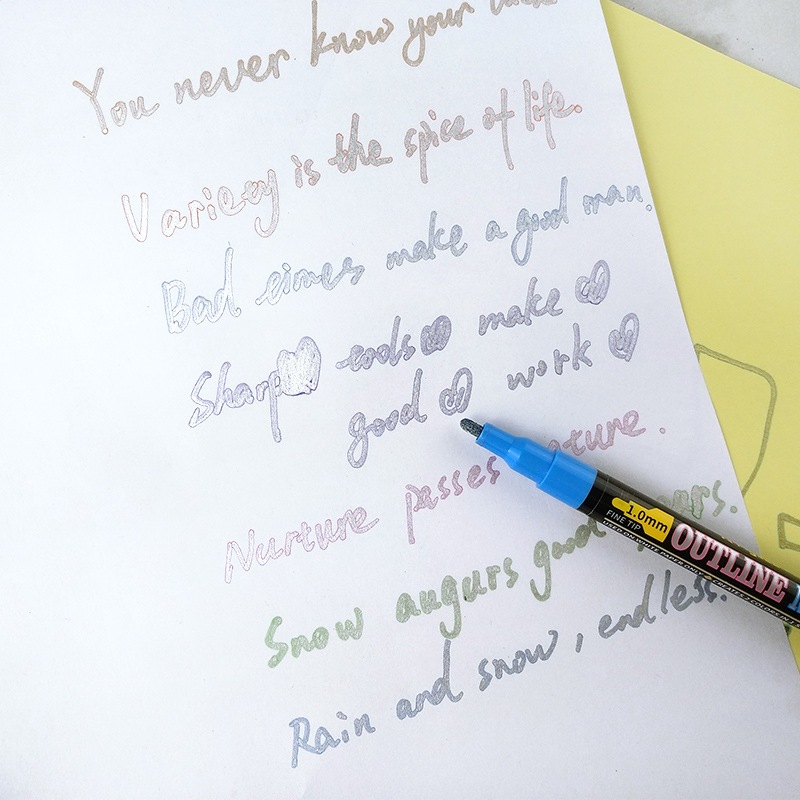 You never know your luck
Variety is the spice of life.
Bad eimes make a good man.
Sharp eools make
good work
Nurture passes nature.
Snow augurs good years.
Rain and snow, endless.
1.0mm
FINE TIP
OUTLINE
USED ON WHITE PAPER ONLY